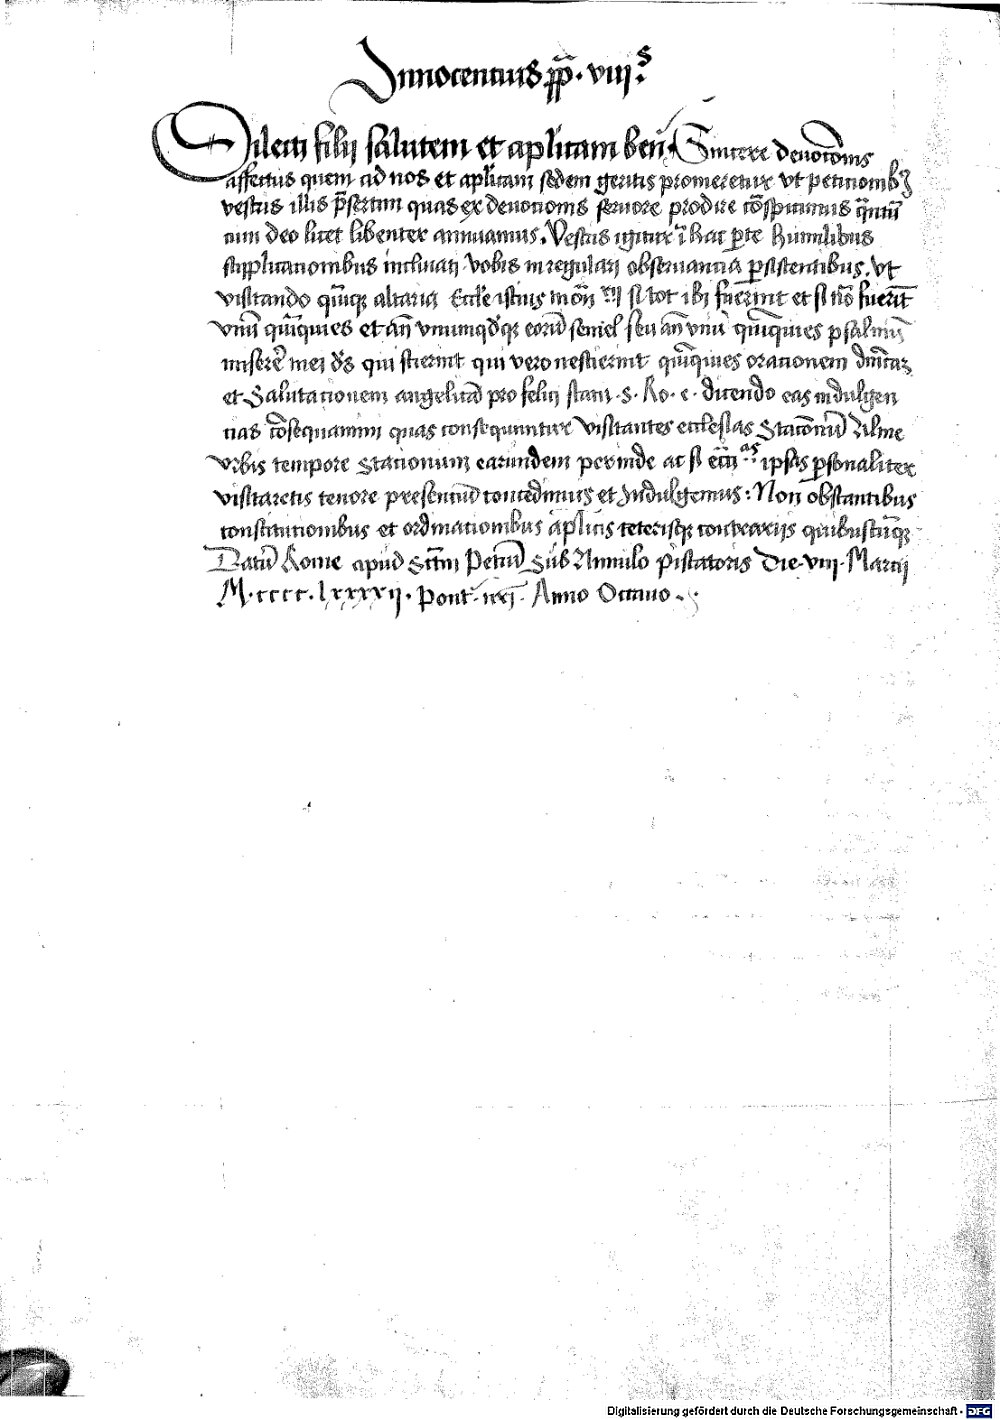 Innocentius pp̄. viij.s
Dilecti filij salutem et aplicam ben̄. Sincere deuotōnis
affectus quem ad nos et aplicam sedem geritis promeretur vt petitionibꝫ
vestris illis p̄sertim quas ex deuotionis feruore prodire cōspicimus q̄ntū
cum deo licet libenter annuamus. Vestris igitur ī hac ꝑte humilibus
supplicationibus inclinati vobis in regulari obseruantia ꝑsistentibus. vt
visitando quīqꝫ altaria Eccl̄e istius mon̄ rij si tot ibi fuerint et si nō fuerīt
vnū quīquies et an̄ vnumqd̄qꝫ eorū semel seu an̄ vnū quīquies psalmū
miserer̄ mei ds̄ qui scierint qui vero nescierint quīquies orationem dn̄icaꝫ
et Salutationem angelicā pro felici statu .S. Ro. e. dicendo eas indulgen
tias cōsequamini quas consequuntur visitantes ecclesias Statōnū Alme
vrbis tempore stationum earundem perinde ac si ecc̄ as ipsas ꝑsonaliter
visitaretis tenore presentiū concedimus et Indulgemus: Non obstantibus
constitutionibus et ordinationibus ap̄licis ceterisqꝫ contrarijs quibuscūqꝫ
Datū Rome apud Sctm̄ Petrū Sub Annulo piscatoris Die .viij. Marcij
M.cccc.lxxxxij. Pont. nr̄i. Anno Octauo.
Digitalisierung gefördert durch die Deutsche Forschungsgemeinschaft - DFG